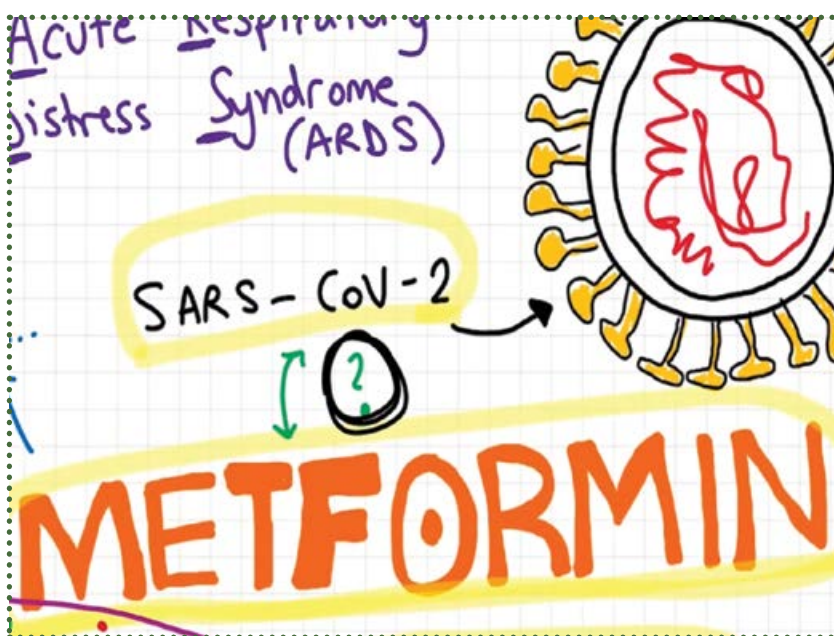 Acute Respiratory
Distress Syndrome
(ARDS)
SARS-CoV-2
?
METFORMIN